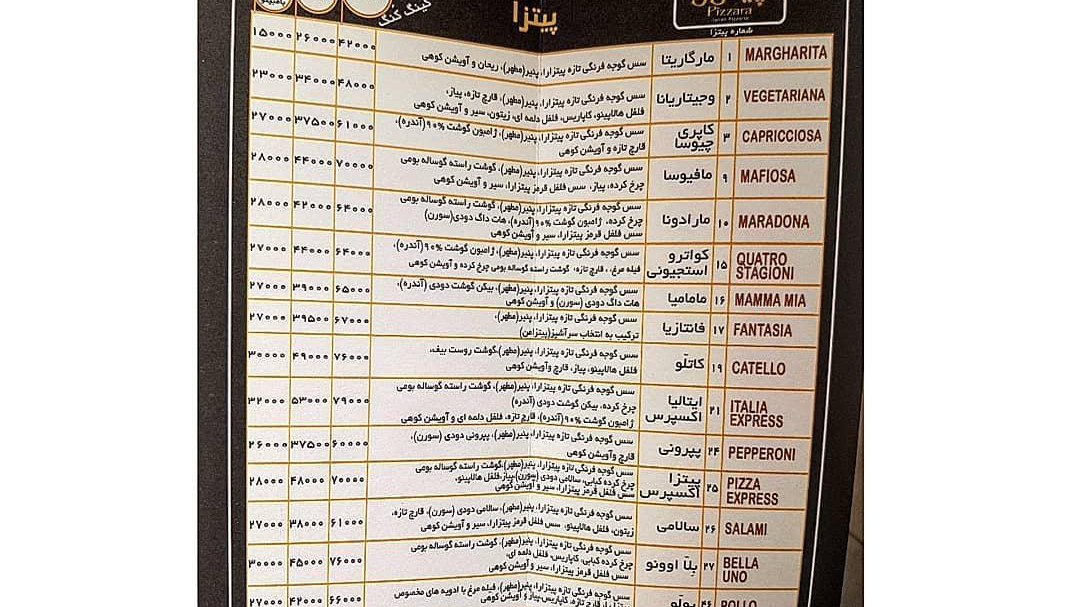 Pizzara
شماره پیتزا
پیتزا
کینگ کُنگ
MARGHARITA ۱ مارگاریتا
سس گوجه فرنگی تازه پیتزارا، پنیر(مطهر)، ریحان و آویشن کوهی
۴۲۰۰۰ ۲۶۰۰۰ ۱۵۰۰۰
VEGETARIANA ۲ وجیتاریانا
سس گوجه فرنگی تازه پیتزارا، پنیر(مطهر)، قارچ تازه، پیاز،
فلفل هالاپینو، کاپاریس، فلفل دلمه ای، زیتون، سیر و آویشن کوهی
۴۸۰۰۰ ۳۴۰۰۰ ۲۳۰۰۰
CAPRICCIOSA ۳ کاپری چیوسا
سس گوجه فرنگی تازه پیتزارا، پنیر(مطهر)، ژامبون گوشت ۹۰%(آندره)،
قارچ تازه و آویشن کوهی
۶۱۰۰۰ ۳۷۵۰۰ ۲۷۰۰۰
MAFIOSA ۹ مافیوسا
سس گوجه فرنگی تازه پیتزارا، پنیر(مطهر)، گوشت راسته گوساله بومی
چرخ کرده، پیاز، سس فلفل قرمز پیتزارا، سیر و آویشن کوهی
۷۰۰۰۰ ۴۴۰۰۰ ۲۸۰۰۰
MARADONA ۱۰ مارادونا
سس گوجه فرنگی تازه پیتزارا، پنیر(مطهر)، گوشت راسته گوساله بومی
چرخ کرده، ژامبون گوشت ۹۰%(آندره)، هات داگ دودی(سورن)
سس فلفل قرمز پیتزارا، سیر و آویشن کوهی
۶۴۰۰۰ ۴۲۰۰۰ ۲۸۰۰۰
QUATRO STAGIONI ۱۵ کواترو استجیونی
سس گوجه فرنگی تازه پیتزارا، پنیر(مطهر)، ژامبون گوشت ۹۰%(آندره)،
فیله مرغ، قارچ تازه، گوشت راسته گوساله بومی چرخ کرده و آویشن کوهی
۶۴۰۰۰ ۴۴۰۰۰ ۲۷۰۰۰
MAMMA MIA ۱۶ مامامیا
سس گوجه فرنگی تازه پیتزارا، پنیر(مطهر)، بیکن گوشت دودی (آندره)،
هات داگ دودی (سورن) و آویشن کوهی
۶۵۰۰۰ ۳۹۰۰۰ ۲۷۰۰۰
FANTASIA ۱۷ فانتازیا
سس گوجه فرنگی تازه پیتزارا، پنیر(مطهر)،
ترکیب به انتخاب سرآشپز(پیتزامن)
۶۷۰۰۰ ۳۹۵۰۰ ۲۷۰۰۰
CATELLO ۱۹ کاتلّو
سس گوجه فرنگی تازه پیتزارا، پنیر(مطهر)،گوشت روست بیف،
فلفل هالاپینو، پیاز، قارچ وآویشن کوهی
۷۶۰۰۰ ۴۹۰۰۰ ۳۰۰۰۰
ITALIA EXPRESS ۲۱ ایتالیا اکسپرس
سس گوجه فرنگی تازه پیتزارا، پنیر(مطهر)، گوشت راسته گوساله بومی
چرخ کرده، بیکن گوشت دودی (آندره)
ژامبون گوشت ۹۰%(آندره)، قارچ تازه، فلفل دلمه ای و آویشن کوهی
۷۹۰۰۰ ۵۳۰۰۰ ۳۲۰۰۰
PEPPERONI ۲۴ پپرونی
سس گوجه فرنگی تازه پیتزارا، پنیر(مطهر)، پپرونی دودی (سورن)،
قارچ وآویشن کوهی
۶۰۰۰۰ ۳۷۵۰۰ ۲۶۰۰۰
PIZZA EXPRESS ۲۵ پیتزا اکسپرس
سس گوجه فرنگی تازه پیتزارا، پنیر(مطهر)،گوشت راسته گوساله بومی
چرخ کرده کبابی، سالامی دودی (سورن)،پیاز،فلفل هالاپینو،
سس فلفل قرمز پیتزارا، سیر و آویشن کوهی
۷۰۰۰۰ ۴۸۰۰۰ ۲۸۰۰۰
SALAMI ۲۶ سالامی
سس گوجه فرنگی تازه پیتزارا، پنیر(مطهر)، سالامی دودی (سورن)، قارچ تازه،
زیتون، فلفل هالاپینو، سس فلفل قرمز پیتزارا، سیر و آویشن کوهی
۶۱۰۰۰ ۳۸۰۰۰ ۲۷۰۰۰
BELLA UNO ۲۷ بلّا اوونو
سس گوجه فرنگی تازه پیتزارا، پنیر(مطهر)، گوشت راسته گوساله بومی
چرخ کرده کبابی، کاپاریس، فلفل دلمه ای،
سس فلفل قرمز پیتزارا، سیر و آویشن کوهی
۷۶۰۰۰ ۴۵۰۰۰ ۳۰۰۰۰
POLLO ۴۶ پولّو
سس گوجه فرنگی تازه پیتزارا، پنیر(مطهر)، فیله مرغ با ادویه های مخصوص
پیتزارا، قارچ تازه، کاپاریس،پیاز و آویشن کوهی
۶۶۰۰۰ ۴۲۰۰۰ ۲۷۰۰۰